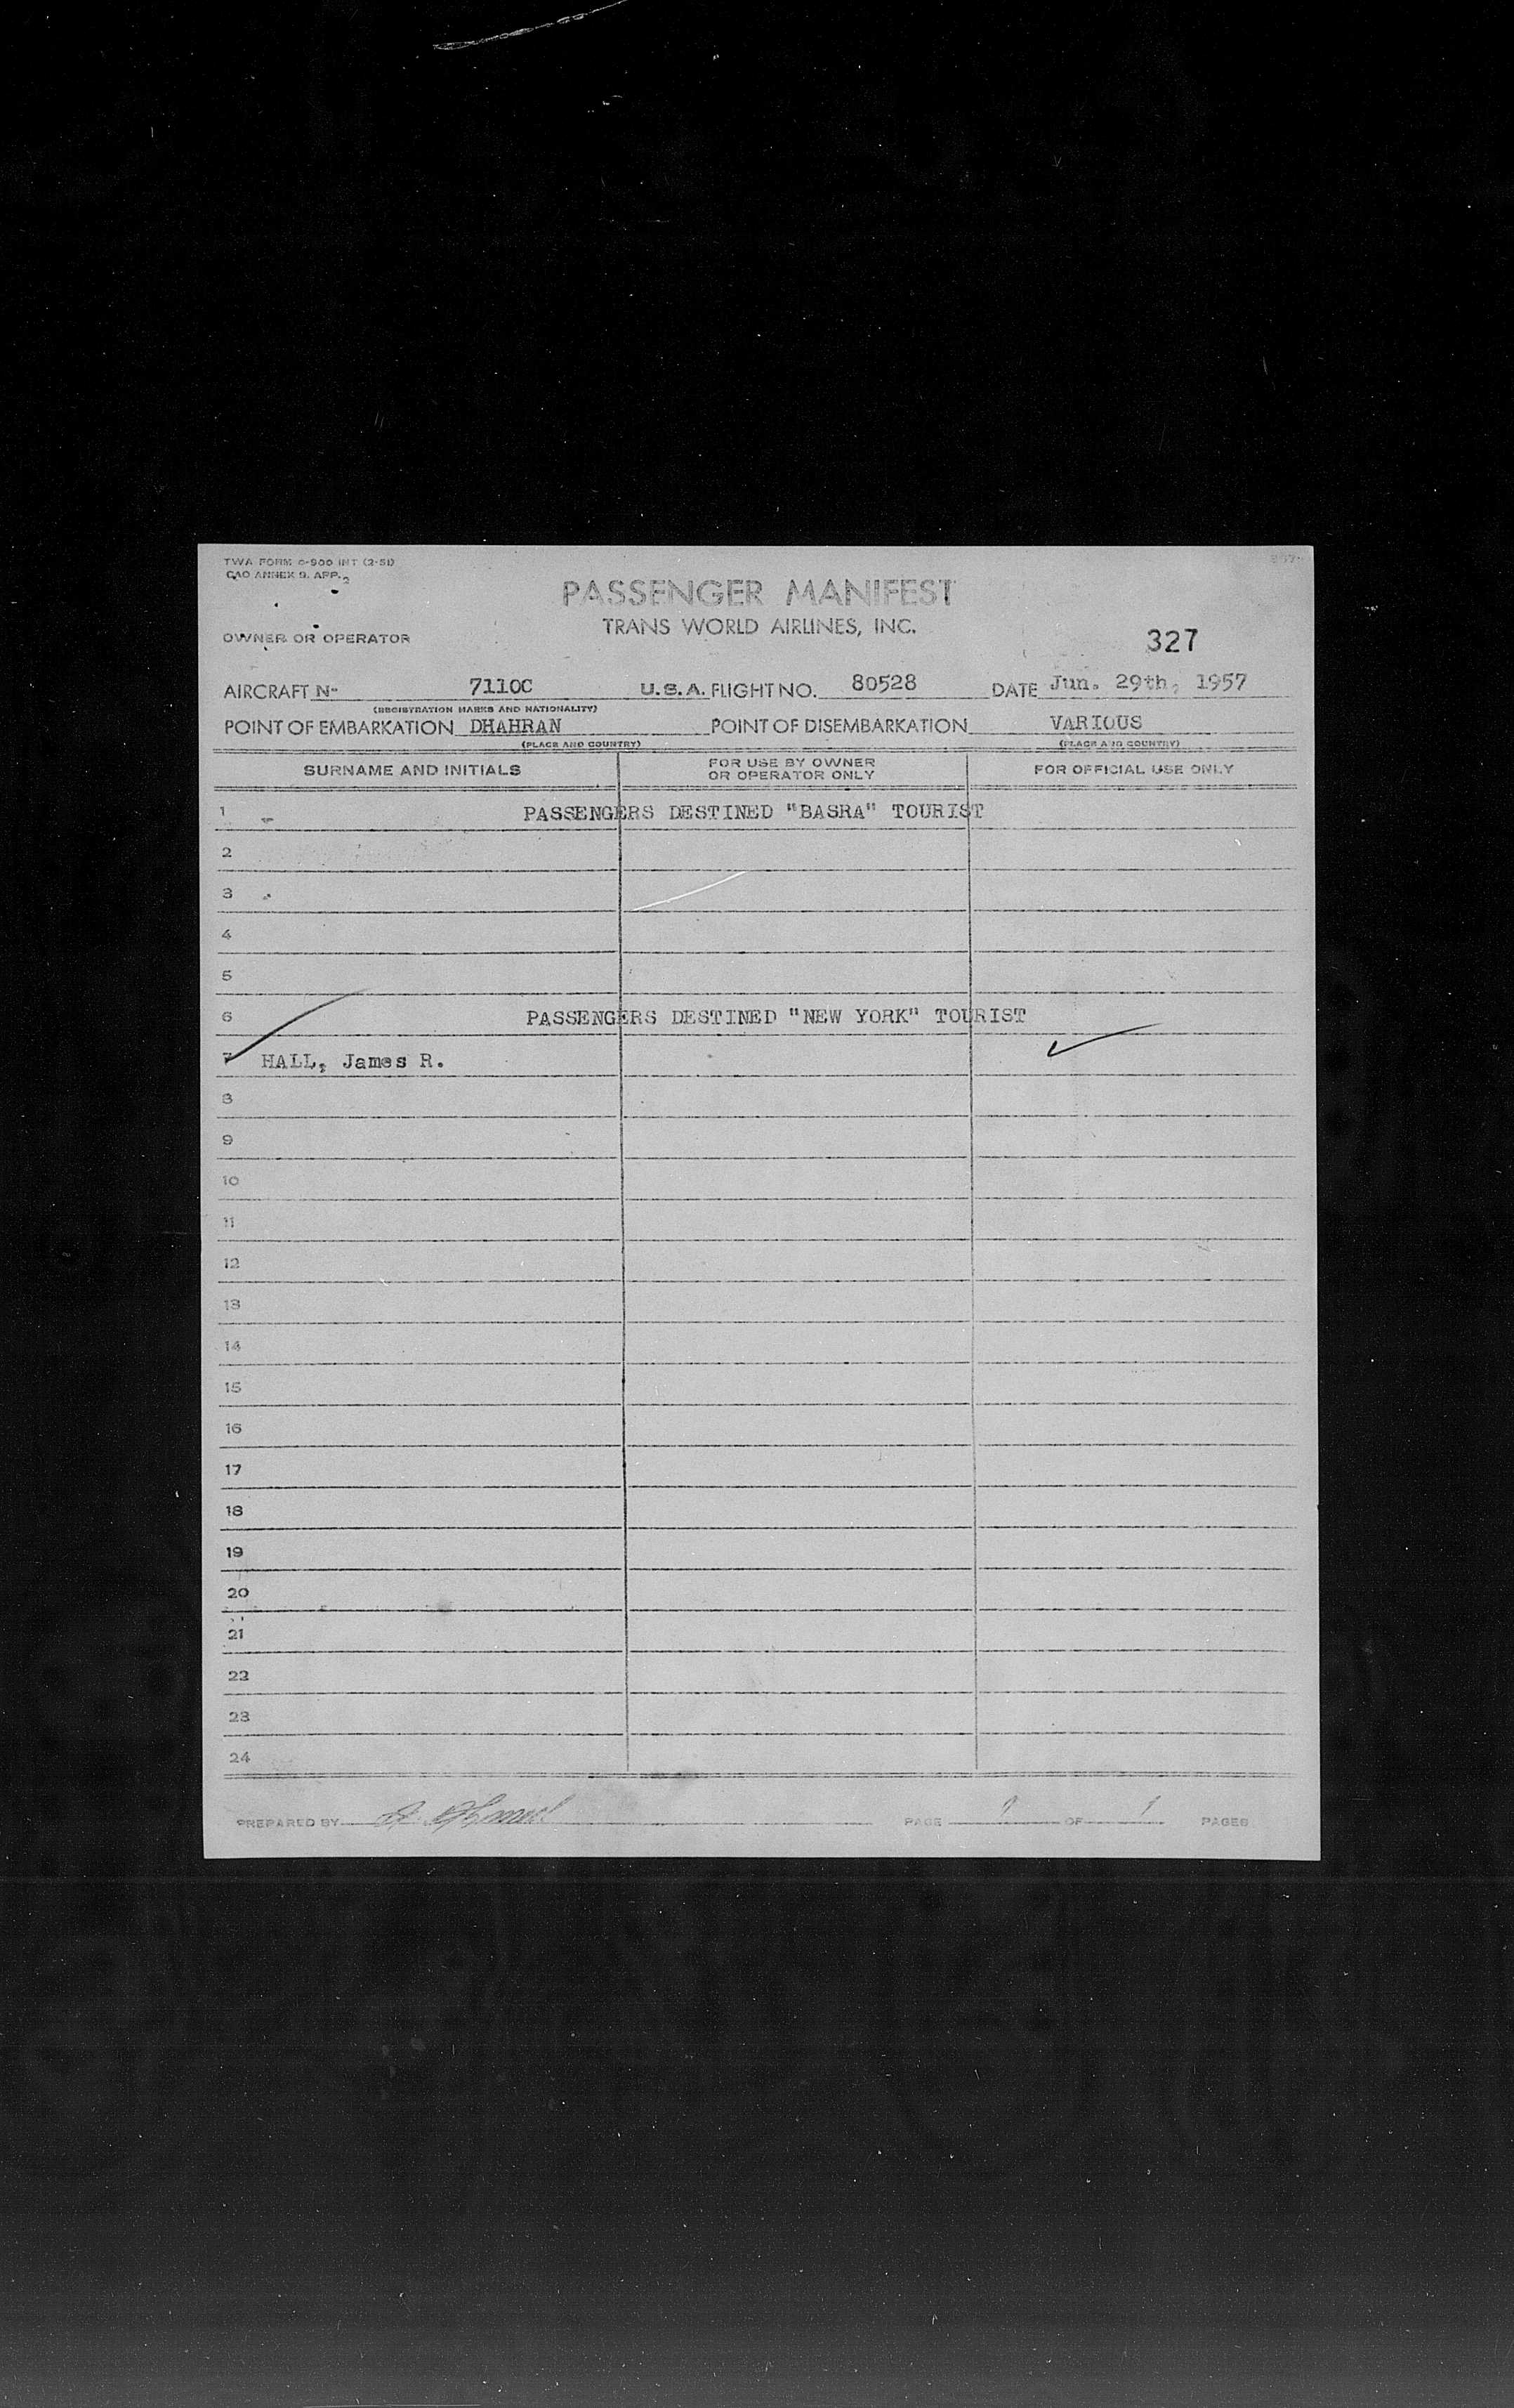 TWA FORM C-900 INT (2-51)
CAO ANNEX 9. APP. 2
PASSENGER MANIFEST
TRANS WORLD AIRLINES, INC.
OWNER OR OPERATOR
327
AIRCRAFT N- 7110C U.S.A. FLIGHT NO. 80528 DATE Jun. 29th, 1957
(REGISTRATION MARKS AND NATIONALITY)
POINT OF EMBARKATION DHAHRAN POINT OF DISEMBARKATION VARIOUS
(PLACE AND COUNTRY) (PLACE AND COUNTRY)
SURNAME AND INITIALS FOR USE BY OWNER OR OPERATOR ONLY FOR OFFICIAL USE ONLY
1 PASSENGERS DESTINED "BASRA" TOURIST
2
3
4
5
6 PASSENGERS DESTINED "NEW YORK" TOURIST
7 HALL, James R.
8
9
10
11
12
13
14
15
16
17
18
19
20
21
22
23
24
PREPARED BY PAGE 1 OF 1 PAGES